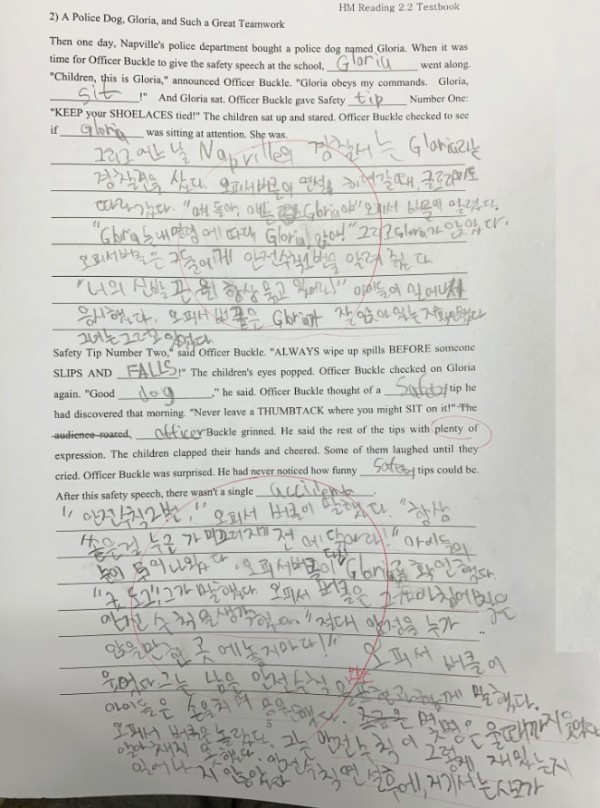 HM Reading 2.2 Testbook
2) A Police Dog, Gloria, and Such a Great Teamwork
Then one day, Napville's police department bought a police dog named Gloria. When it was
time for Officer Buckle to give the safety speech at the school, Gloria went along.
"Children, this is Gloria," announced Officer Buckle. "Gloria obeys my commands. Gloria,
sit !" And Gloria sat. Officer Buckle gave Safety tip Number One:
"KEEP your SHOELACES tied!" The children sat up and stared. Officer Buckle checked to see
if Gloria was sitting at attention. She was.
그리고 어느 날 Napville의 경찰서는 Gloria라는
경찰견을 샀다. 오피서버클의 연설을 하러갈때, 글로리아도
따라갔다. "얘들아, 얘는 Gloria야" 오피서 버클이 말했다.
"Gloria는 내 명령에 따라 Gloria, 앉아!" 그리고 Gloria가 앉았다.
오피서버클은 그들에게 안전수칙1번을 알려줬다
"너의 신발끈을 항상 묶고 있어라!" 아이들이 일어나서
응시했다. 오피서 버클은 Gloria가 잘 앉아있는지확인했다
그녀는 그러고 있었다.
Safety Tip Number Two," said Officer Buckle. "ALWAYS wipe up spills BEFORE someone
SLIPS AND FALLS!" The children's eyes popped. Officer Buckle checked on Gloria
again. "Good dog ," he said. Officer Buckle thought of a Safety tip he
had discovered that morning. "Never leave a THUMBTACK where you might SIT on it!" The
audience roared, officer Buckle grinned. He said the rest of the tips with plenty of
expression. The children clapped their hands and cheered. Some of them laughed until they
cried. Officer Buckle was surprised. He had never noticed how funny Safety tips could be.
After this safety speech, there wasn't a single accident .
"안전수칙2번," 오피서 버클이 말했다. "항상
쏟은걸 누군가 미끄러지기 전에 닦아라!" 아이들의
눈이 튀어나왔다. 오피서버클이 Gloria를 확인했다.
"굿 도그," 그가 말했다. 오피서 버클은 그가아침에찾은
안전수칙을생각했다. "절대 압정을 누가
앉을만한 곳에 놓지마라!" 오피서 버클이
웃었다. 그는 남은 안전수칙을표현과함께 말했다.
아이들은 손을치며 응원했다. 조금은 몇명은 울때까지웃었다
오피서 버클은 놀랐다. 그는 안전수칙이 그렇게 재밌는지
알아채지 못했다. 안전수칙연설후에, 저기서는사고가
일어나지 않았다
5